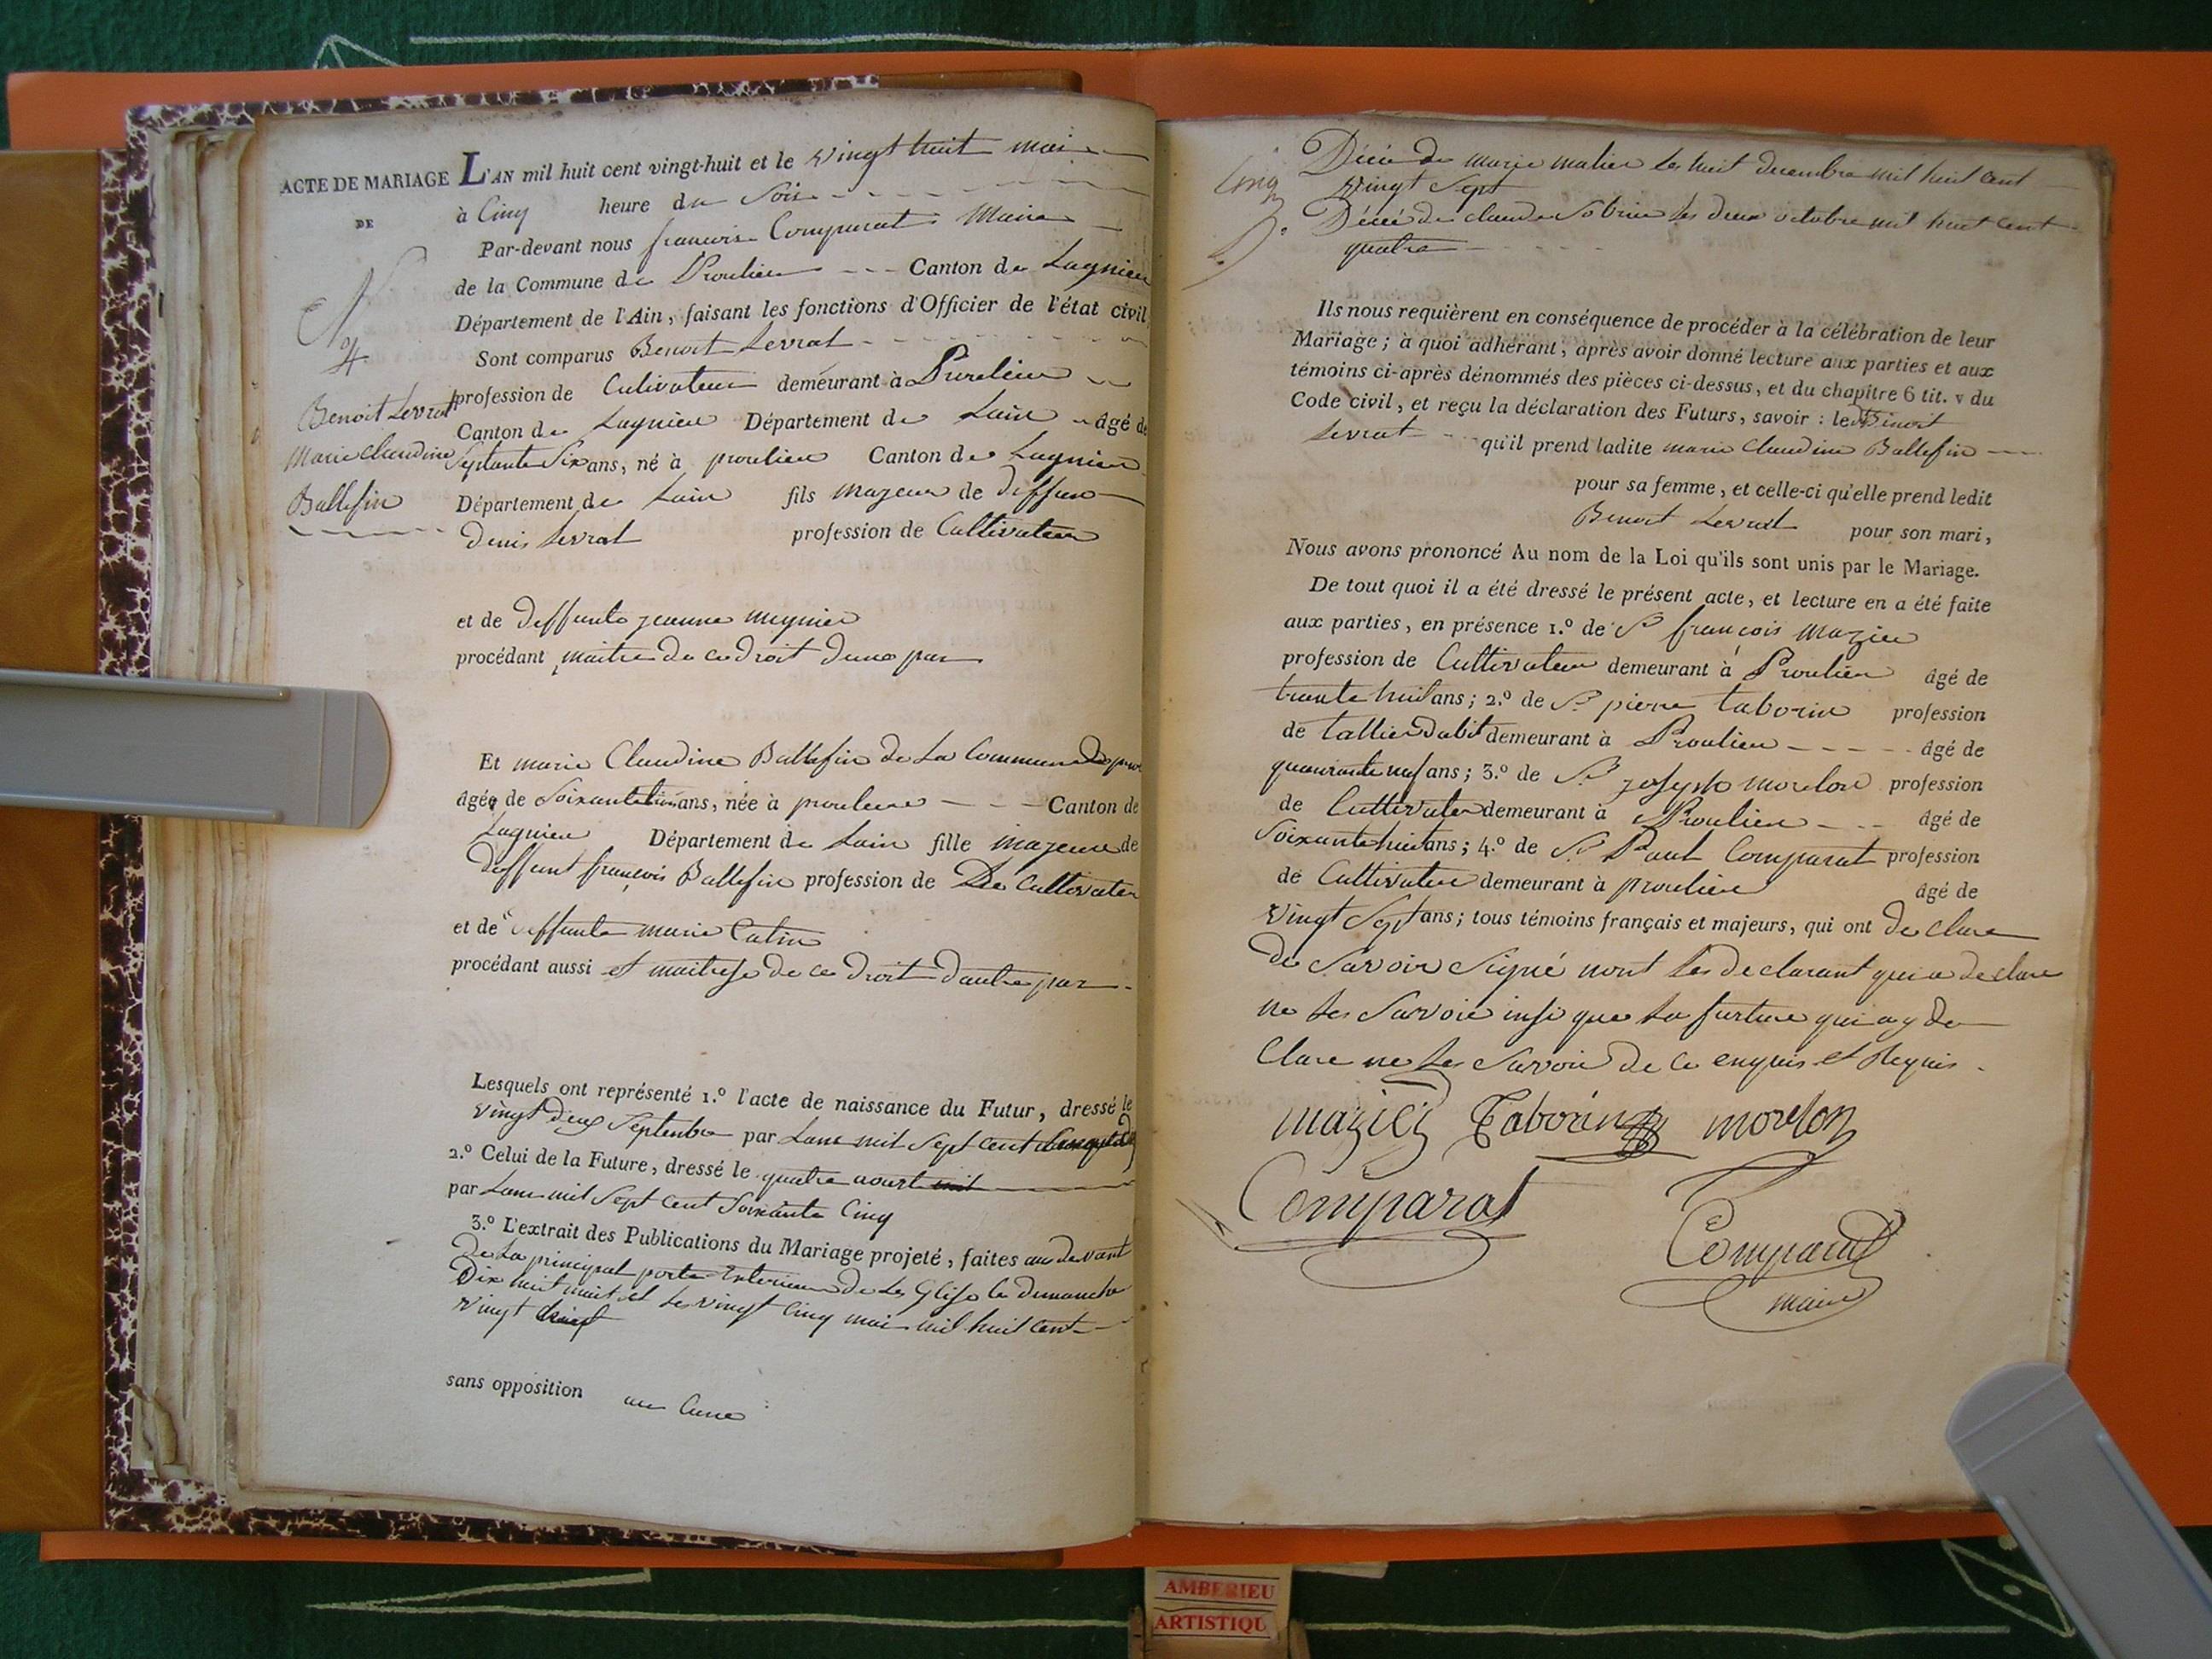 ACTE DE MARIAGE
DE
N.o 4
Benoit Levrat
Marie Claudine
Ballefin
L'AN mil huit cent vingt-huit et le vingt huit mai
à Cinq heure du Soir
Par-devant nous francois Comparat Maire
de la Commune de Proulieu Canton de Lagnieu
Département de l'Ain, faisant les fonctions d'Officier de l'état civil
Sont comparus Benoit Levrat
profession de Cultivateur demeurant à Proulieu
Canton de Lagnieu Département de Lain âgé de
Septante Six ans, né à proulieu Canton de Lagnieu
Département de Lain fils mageur de deffun
denis Levrat profession de Cultivateur
et de deffunte jeanne meynier
procédant maitre de ce droit dune par
Et marie Claudine Ballefin de La Commune de
âgée de Soixante ans, née à proulieu Canton de
Lagnieu Département de Lain fille mageure de
deffunt françois Ballefin profession de De Cultivateur
et de deffunte marie Catin
procédant aussi et maitresse de ce droit dautre par
Lesquels ont représenté 1.º l'acte de naissance du Futur, dressé le
vingt deux Septembre par Lans mil Sept cent
2.º Celui de la Future, dressé le quatre aoust
par Lans mil Sept cent Soixante Cinq
3.º L'extrait des Publications du Mariage projeté, faites au devant
de La principal porte Exterieur de Leglise le dimanche
Dix huit mai et Le vingt Cinq mai mil huit cent
vingt huit
sans opposition au Cune
Cinq
Décé de marie matier Les huit decembre mil huit cent
vingt Sept
Décé de claude Sobrin Les deux octobre mil huit cent
quatre
Ils nous requièrent en conséquence de procéder à la célébration de leur
Mariage; à quoi adhérant, après avoir donné lecture aux parties et aux
témoins ci-après dénommés des pièces ci-dessus, et du chapître 6 tit. v du
Code civil, et reçu la déclaration des Futurs, savoir : le Benoit
Levrat qu'il prend ladite marie Claudine Ballefin
pour sa femme, et celle-ci qu'elle prend ledit
Benoit Levrat pour son mari,
Nous avons prononcé Au nom de la Loi qu'ils sont unis par le Mariage.
De tout quoi il a été dressé le présent acte, et lecture en a été faite
aux parties, en présence 1.º de Sr françois mazier
profession de Cultivateur demeurant à Proulieu âgé de
trante huit ans; 2.º de Sr pierre taborin profession
de tallier dabit demeurant à Proulieu âgé de
quarante neuf ans; 3.º de Sr joseph morelon profession
de Cultivater demeurant à Proulieu âgé de
Soixante huit ans; 4.º de Sr Paul Comparat profession
de Cultivateur demeurant à proulieu âgé de
vingt Sept ans; tous témoins français et majeurs, qui ont de clare
de Savoir Signé nont Les declarant qui a declare
ne Les Savoir insi que La furture qui a y de
Clare ne Les Savoir de ce enquis et Requis.
maziez Taborin morelon
Comparat
Comparat
maire
AMBERIEU
ARTISTIQU